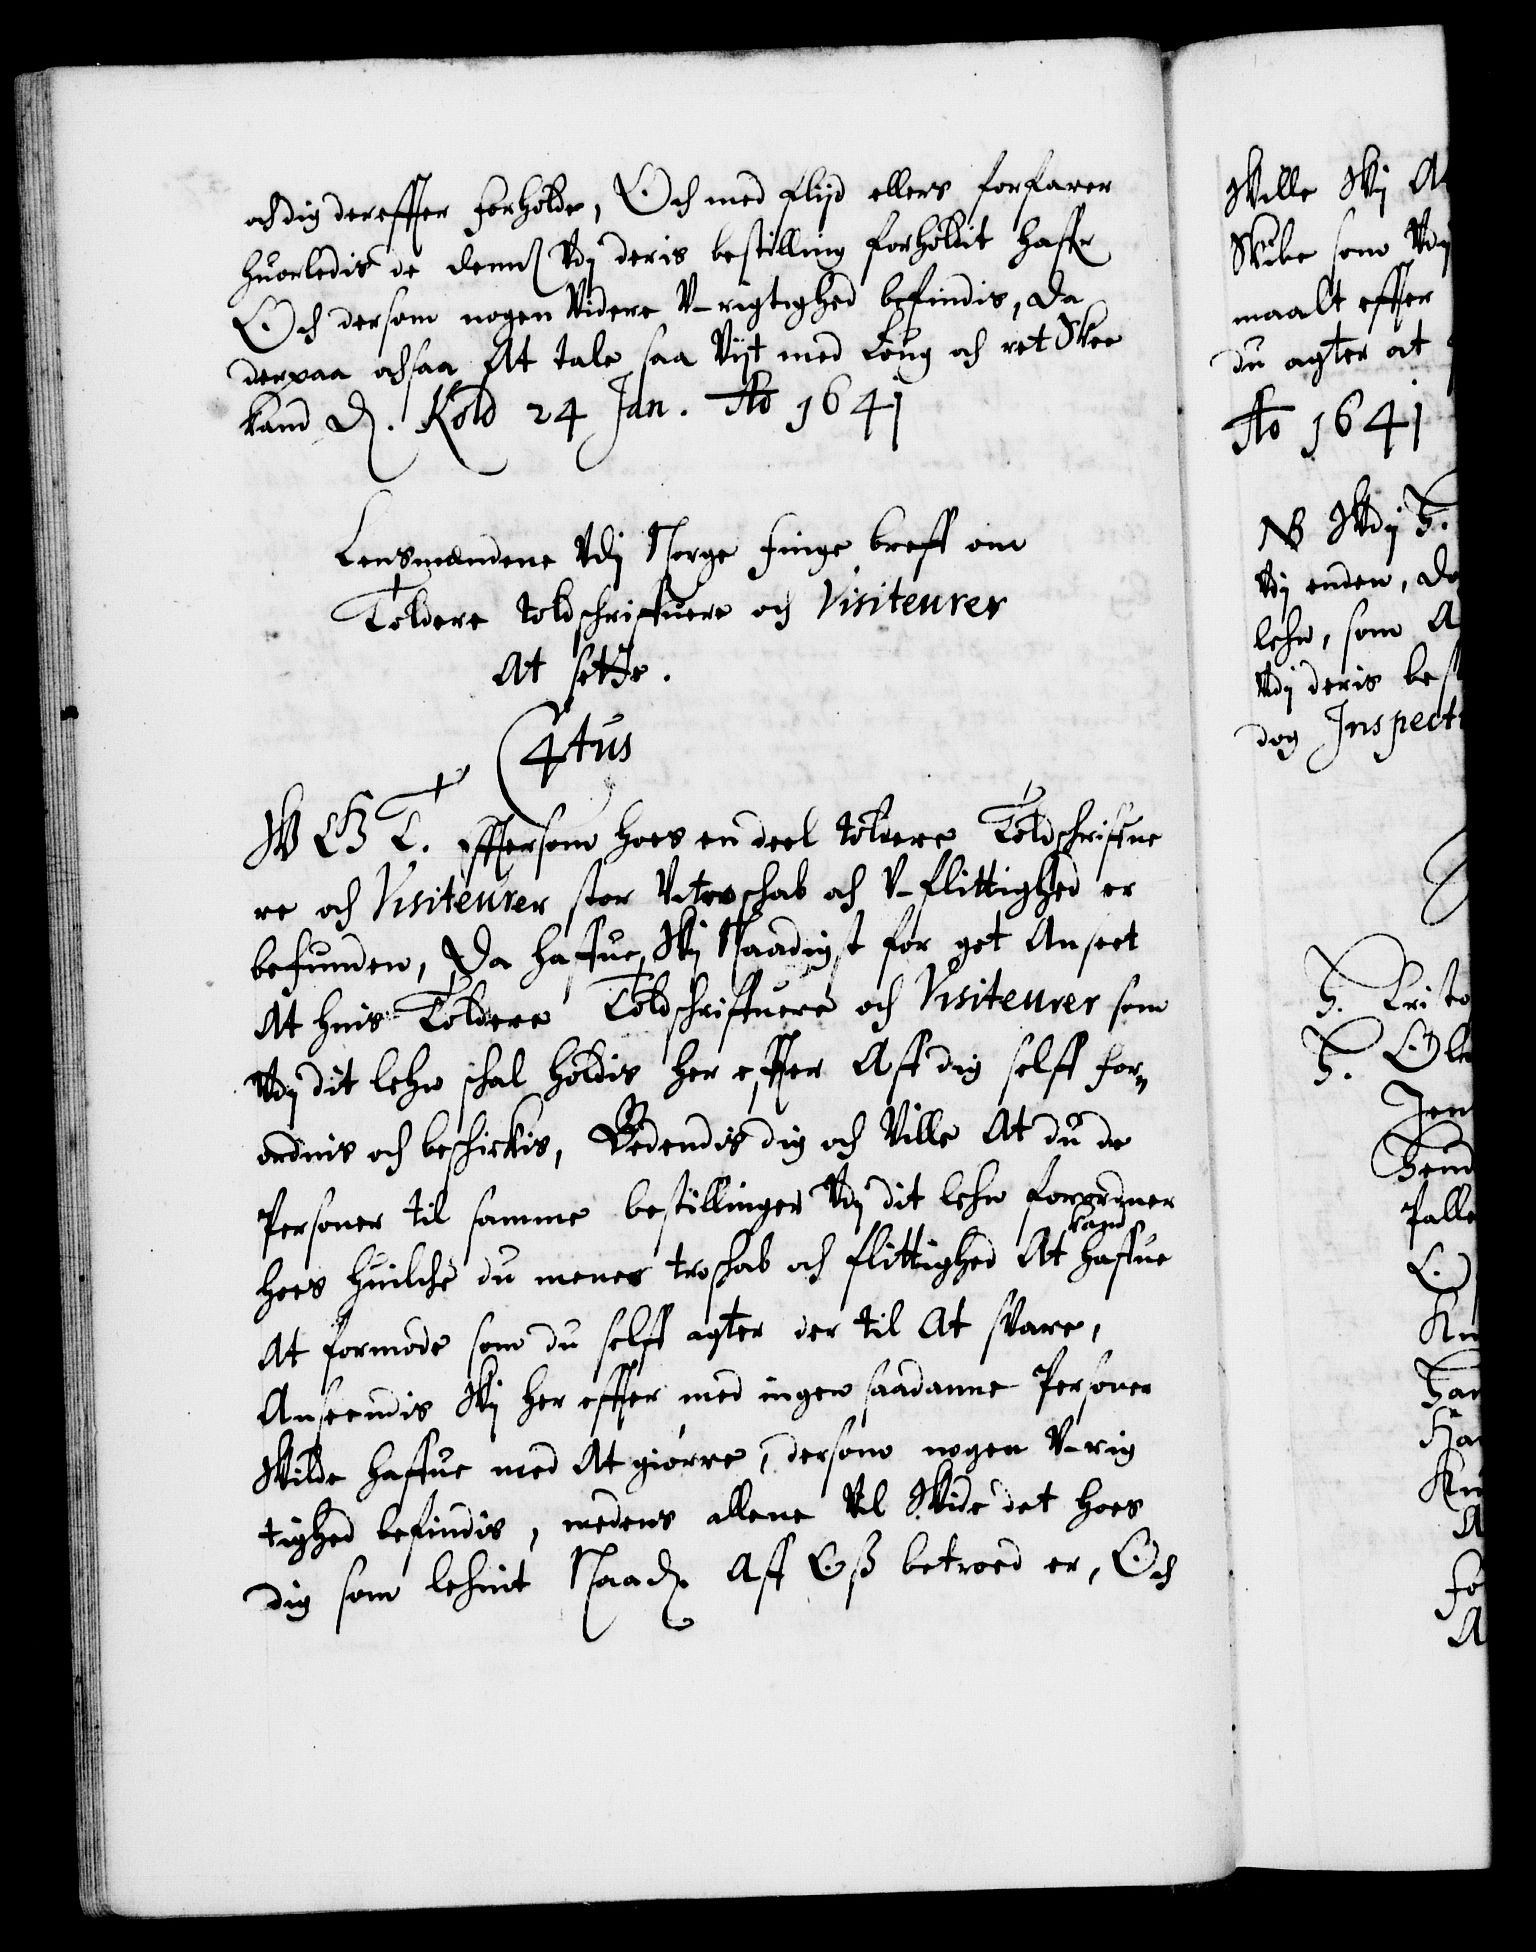 och dig derefter forholde, Och med flijd ellers forfarer
huorledis de dennem Vdj deris bestilling forholdit haffr
Och dersom nogen Videre V-rigtighed befindis, da
derpaa ochsaa At tale saa Vijt med Loug och ret Skee
kand Kold 24 Jan. Ao 1641
Lensmandene Vdj Norge finge breff om
Toldere toldschriffuere och Visiteurer
At sette.
C4tus
W G T. Eftersom hoes en deel toldere Toldschriffue
re och Visiteurer stor Vtroschab och V-flittighed er
befunden, Da haffue Wij Naadigst for got Anseet
At huis Toldere Toldschriffuere och Visiteurer som
Vdj dit lehn schal holdis her effter Aff dig selff for-
ordnis och beschickis, Bedendis dig och Ville At du de
Personer til samme bestillinger Vdj dit lehn forordner
hoes huilche du mener troschab och flittighed At kand haffue
At formode som du selff agter der til At svare,
Anseendis Wij her effter med ingen saadanne Personer
Wilde haffue med At giørre, dersom nogen V-rig
tighed befindis, medens allene Vel Wide det hoes
dig som lehnit Naadg Aff Oß betroed er, Och
Wille Wij A
Skibe som Vdj
maalt effter
du agter at
Ao 1641
NB Wdj H.
Vdj enden, da
lehn, som A
Vdj deris best
dog Inspect
H. Christo
H. Ol
Jen
Hend
Palle
Kn
Han
Knu
A
fo
A